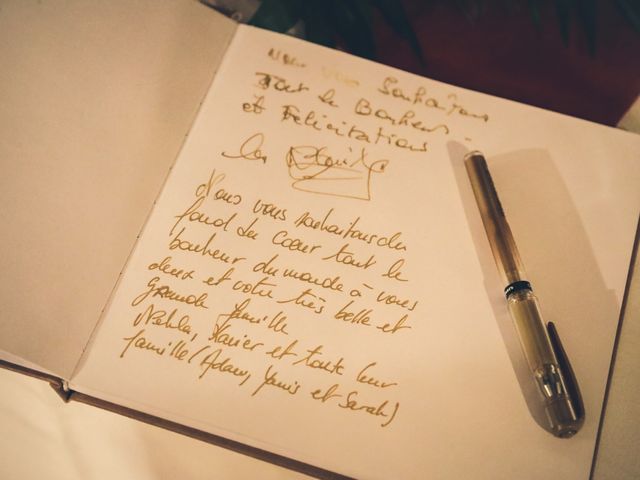 Nous vous Souhaitons
Tout le Bonheur
et Félicitations
Nous vous souhaitons du
fond du cœur tout le
bonheur du monde à vous
deux et votre très belle et
grande famille
Nehla, Xavier et toute leur
famille (Adam, Yanis et Sarah)